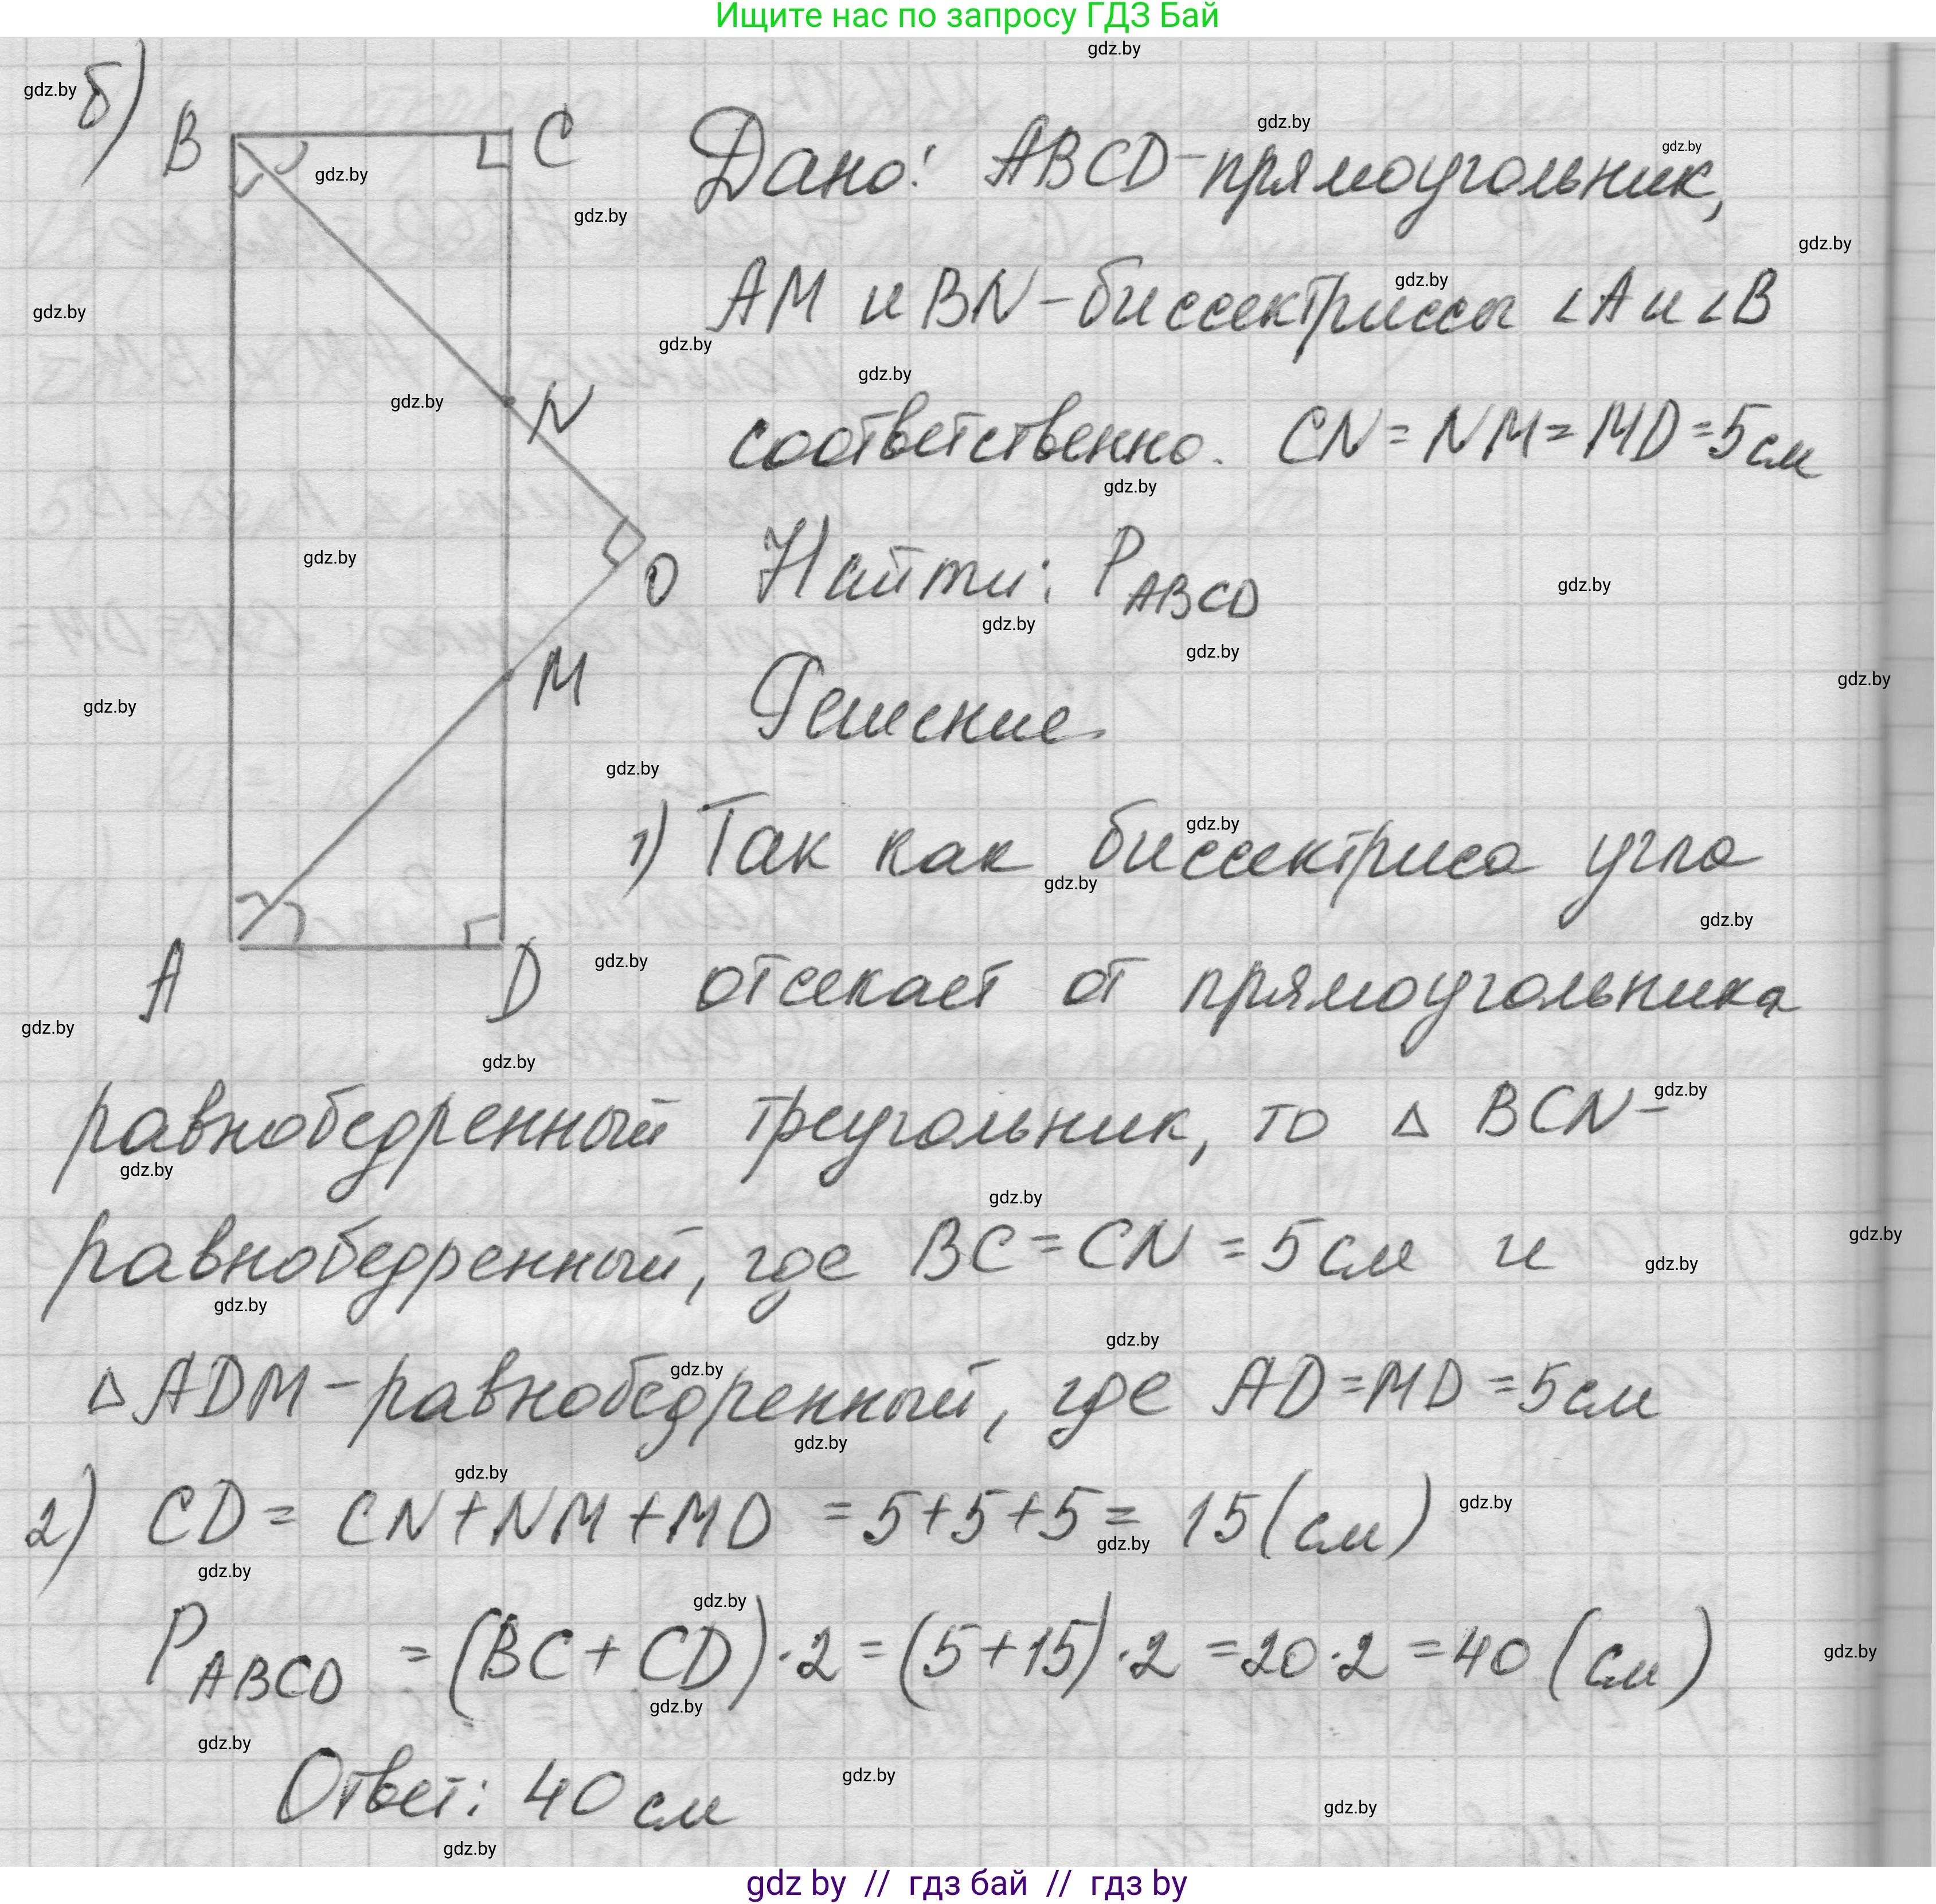 Ищите нас по запросу ГДЗ Бай
б)
B
C
N
O
M
A
D
Дано: ABCD-прямоугольник,
AM и BN-биссектрисы ∠A и ∠B
соответственно. CN = NM = MD = 5 см
Найти: P ABCD
Решение
1) Так как биссектриса угла
отсекает от прямоугольника
равнобедренный треугольник, то △ BCN-
равнобедренный, где BC = CN = 5 см и
△ ADM-равнобедренный, где AD = MD = 5 см
2) CD = CN + NM + MD = 5+5+5 = 15 (см)
P ABCD = (BC + CD)·2 = (5+15)·2 = 20·2 = 40 (см)
Ответ: 40 см
gdz by // гдз бай // гдз by